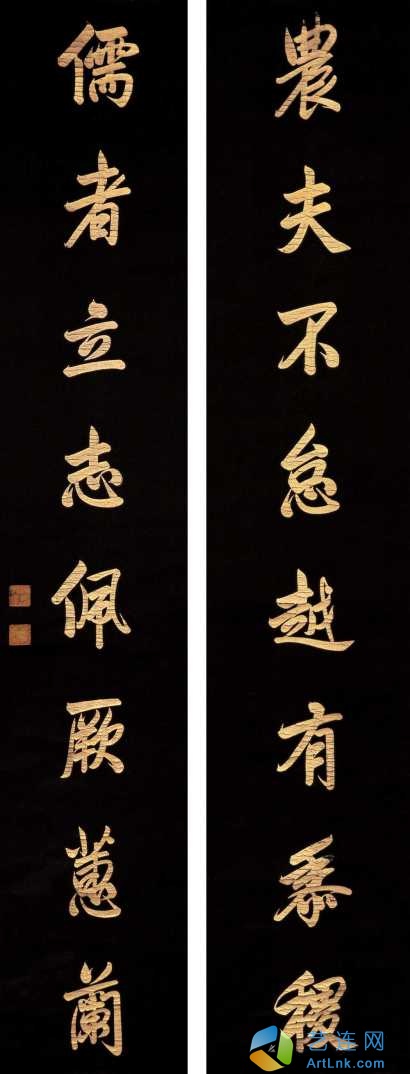 農夫不怠越有黍稷
儒者立志佩厥蕙蘭
艺连网
ArtLnk.com